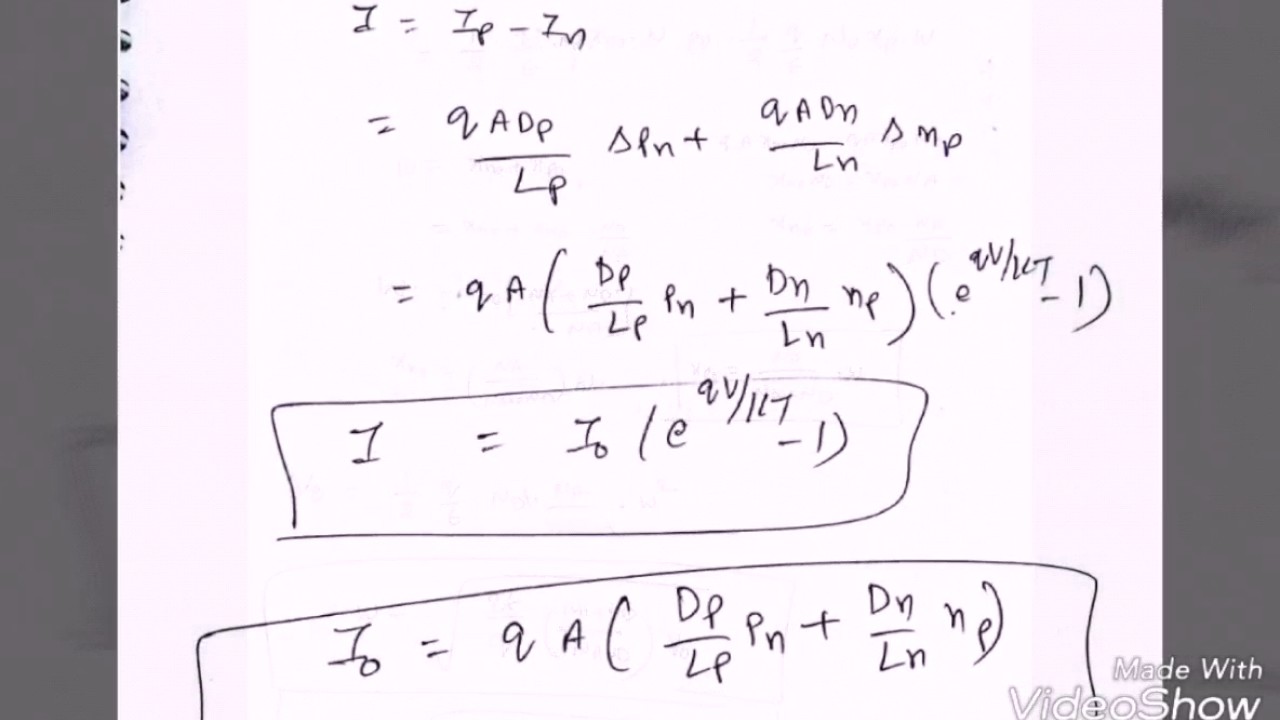 I = Ip - In
= qADp/Lp Δpn + qADn/Ln Δnp
= qA( Dp/Lp pn + Dn/Ln np )(e^qV/KT - 1)
I = I₀ (e^qV/KT - 1)
I₀ = qA( Dp/Lp pn + Dn/Ln np )
Made With
VideoShow